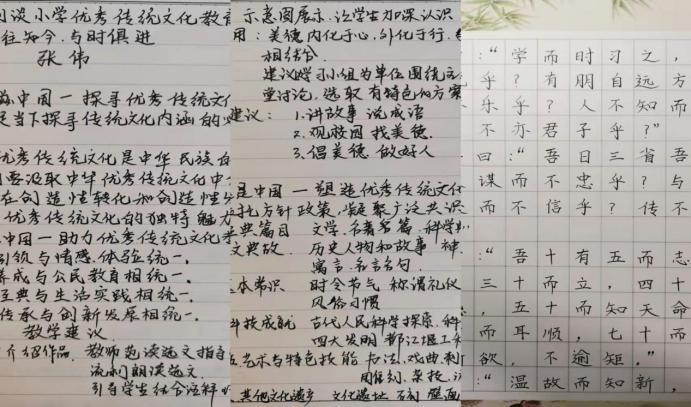 谈小学优秀传统文化教育
往知今,与时俱进
张伟
中国一探寻优秀传统文
当下探寻传统文化内涵的
优秀传统文化是中华民族
要汲取中华优秀传统文化中
在创造性转化和创造性
优秀传统文化的独特魅力
中国一助力优秀传统文化
引领与情感体验统一。
养成与公民教育相统一。
经典与生活实践相统一。
传承与创新发展相统一。
教学建议
介绍作品,教师范读选文指导
流利朗读选文
引导学生结合注释
示意图展示,让学生加深认识
用:美德内化于心,外化于行,
相结合。
建议以学习小组为单位围绕主
堂讨论,选取有特色的方案
建议:1.讲故事 说成语
2.观校园 找美德.
3.倡美德 做好人
是中国一塑造优秀传统文化
依托方针政策,凝聚广泛共识
典篇目 文学、名著名篇、科学
文典故. 历史人物和故事、神
寓言、名言名句.
本常识 时令节气 称谓礼仪
风俗习惯
科技成就 古代人民科学探索、科
四大发明 都江堰工
艺术与特色技能 书法、戏曲、
雕刻、杂技、
其他文化遗产 文化遗址 石刻 壁画
:“学而时习之,
乎?有朋自远方
乐乎?人不知而
不亦君子乎?”
曰:“吾日三省吾
谋而不忠乎?与
而不信乎?传不
:“吾十有五而志
三十而立,四十
,五十而知天命
而耳顺,七十而
欲,不逾矩。”
:“温故而知新,